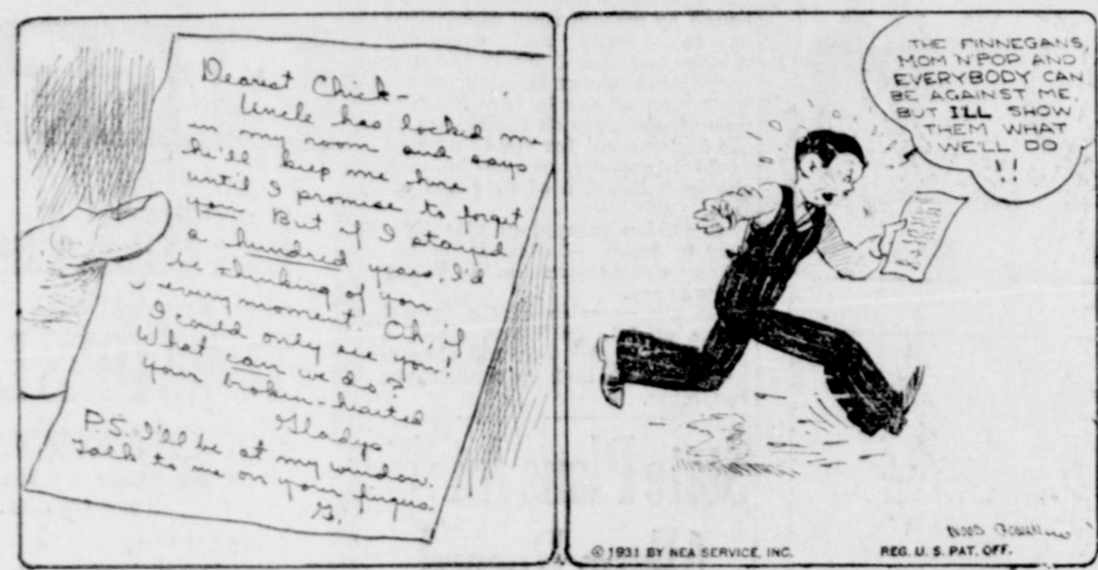 Dearest Chick-
Uncle has locked me
in my room and says
he'll keep me here
until I promise to forget
you. But if I stayed
a hundred years, I'd
be thinking of you
every moment. Oh, if
I could only see you!
What can we do?
Your broken-hearted
Gladys
P.S. I'll be at my window.
Talk to me on your fingers.
G.
THE FINNEGANS,
MOM 'N' POP AND
EVERYBODY CAN
BE AGAINST ME,
BUT I'LL SHOW
THEM WHAT
WE'LL DO
!!
© 1931 BY NEA SERVICE, INC.
REG. U. S. PAT. OFF.